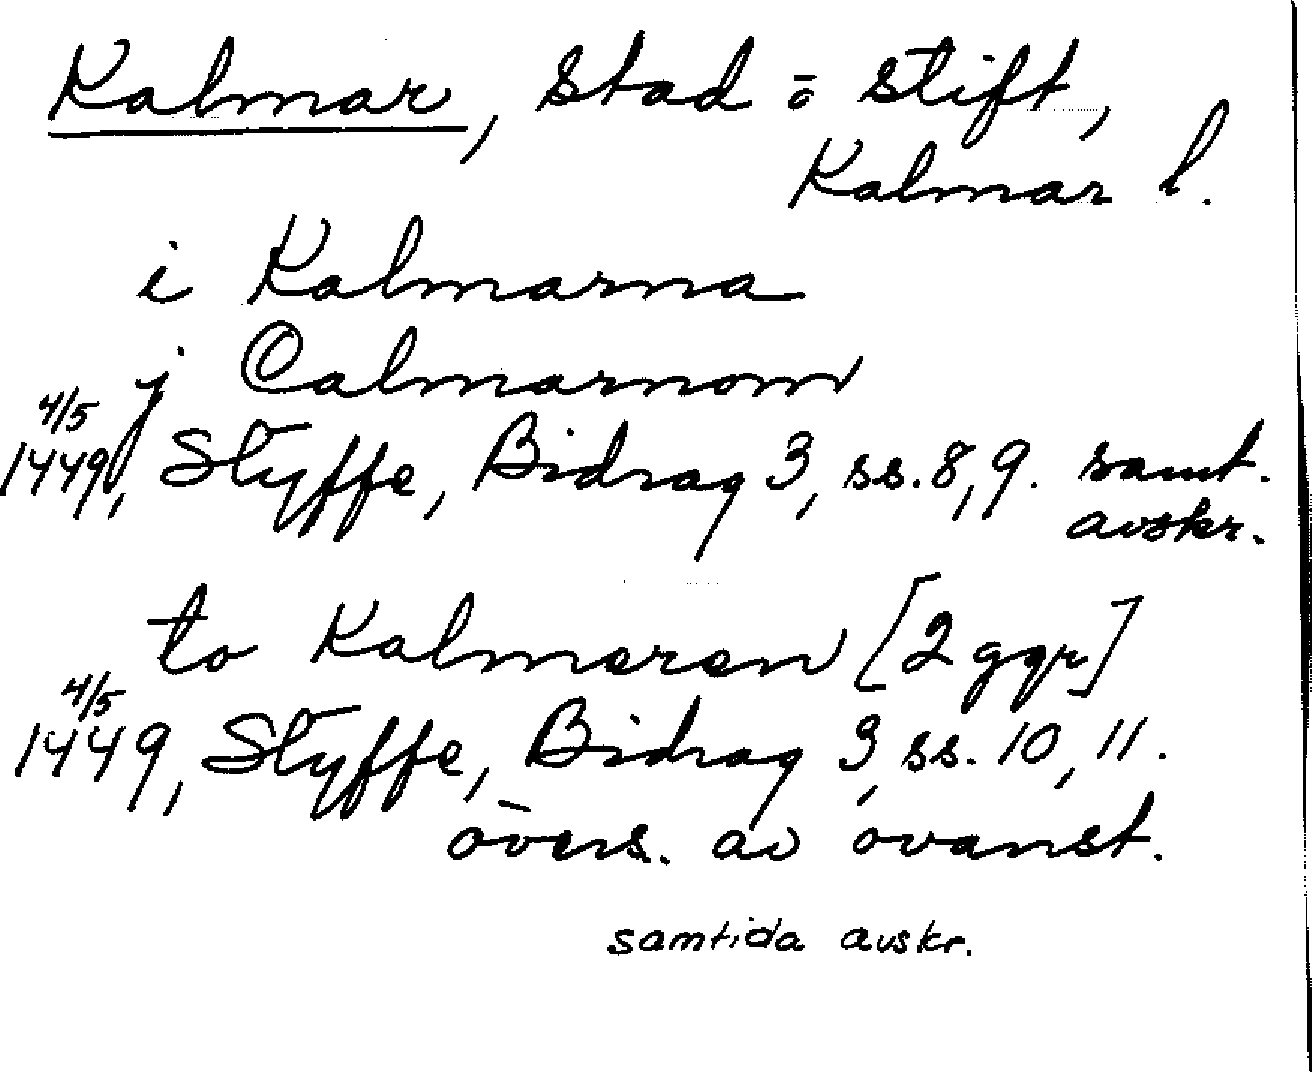 Kalmar, stad o stift,
Kalmar l.
i Kalmarna
j Calmarnom
4/5
1449, Styffe, Bidrag 3, ss. 8, 9. samt.
avskr.
to Kalmeren [2 ggr]
4/5
1449, Styffe, Bidrag 3, ss. 10, 11.
övers. av ovanst.
samtida avskr.